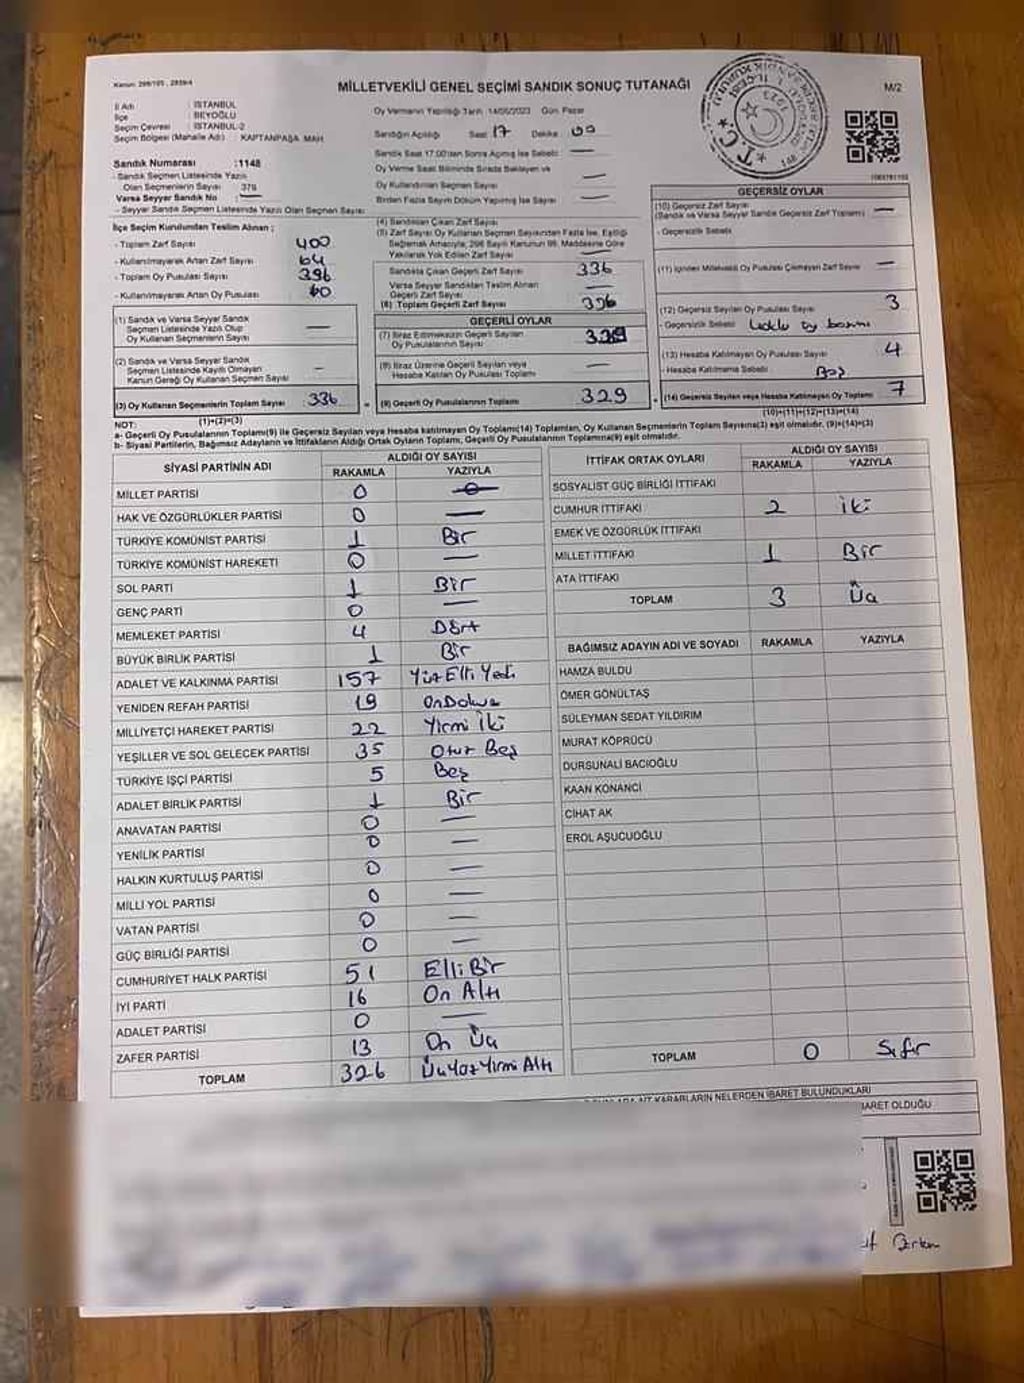 Kanun: 298/105 , 2839/4
MİLLETVEKİLİ GENEL SEÇİMİ SANDIK SONUÇ TUTANAĞI
M/2
İl Adı : İSTANBUL
İlçe : BEYOĞLU
Seçim Çevresi : İSTANBUL-2
Seçim Bölgesi (Mahalle Adı) : KAPTANPAŞA MAH
Sandık Numarası :1148
- Sandık Seçmen Listesinde Yazılı
Olan Seçmenlerin Sayısı 379
Varsa Seyyar Sandık No : —
- Seyyar Sandık Seçmen Listesinde Yazılı Olan Seçmen Sayısı
Oy Vermenin Yapıldığı Tarih 14/05/2023 Gün Pazar
Sandığın Açıldığı Saat 17 Dakika 00
Sandık Saat 17.00'den Sonra Açılmış İse Sebebi —
Oy Verme Saati Bitiminde Sırada Bekleyen ve
Oy Kullandırılan Seçmen Sayısı —
Birden Fazla Sayım Döküm Yapılmış İse Sayısı —
İlçe Seçim Kurulundan Teslim Alınan ;
- Toplam Zarf Sayısı 400
- Kullanılmayarak Artan Zarf Sayısı 64
- Toplam Oy Pusulası Sayısı 396
- Kullanılmayarak Artan Oy Pusulası 60
(1) Sandık ve Varsa Seyyar Sandık
Seçmen Listesinde Yazılı Olup
Oy Kullanan Seçmenlerin Sayısı —
(2) Sandık ve Varsa Seyyar Sandık
Seçmen Listesinde Kayıtlı Olmayan
Kanun Gereği Oy Kullanan Seçmen Sayısı —
(3) Oy Kullanan Seçmenlerin Toplam Sayısı 336
(1)+(2)=(3)
(4) Sandıktan Çıkan Zarf Sayısı
(5) Zarf Sayısı Oy Kullanan Seçmen Sayısından Fazla İse, Eşitliği
Sağlamak Amacıyla, 298 Sayılı Kanunun 98. Maddesine Göre
Yakılarak Yok Edilen Zarf Sayısı —
Sandıkta Çıkan Geçerli Zarf Sayısı 336
Varsa Seyyar Sandıktan Teslim Alınan
Geçerli Zarf Sayısı —
(6) Toplam Geçerli Zarf Sayısı 336
GEÇERLİ OYLAR
(7) İtiraz Edilmeksizin Geçerli Sayılan
Oy Pusulalarının Sayısı 329
(8) İtiraz Üzerine Geçerli Sayılan veya
Hesaba Katılan Oy Pusulası Toplamı —
(9) Geçerli Oy Pusulalarının Toplamı 329
GEÇERSİZ OYLAR
(10) Geçersiz Zarf Sayısı —
(Sandık ve Varsa Seyyar Sandık Geçersiz Zarf Toplamı)
- Geçersizlik Sebebi
(11) İçinden Milletvekili Oy Pusulası Çıkmayan Zarf Sayısı —
(12) Geçersiz Sayılan Oy Pusulası Sayısı 3
- Geçersizlik Sebebi oy
(13) Hesaba Katılmayan Oy Pusulası Sayısı 4
- Hesaba Katılmama Sebebi Boş
(14) Geçersiz Sayılan veya Hesaba Katılmayan Oy Toplamı 7
(10)+(11)+(12)+(13)=(14)
NOT:
a- Geçerli Oy Pusulalarının Toplamı(9) ile Geçersiz Sayılan veya Hesaba Katılmayan Oy Toplamı(14) Toplamları, Oy Kullanan Seçmenlerin Toplam Sayısına(3) eşit olmalıdır. (9)+(14)=(3)
b- Siyasi Partilerin, Bağımsız Adayların ve İttifakların Aldığı Ortak Oyların Toplamı, Geçerli Oy Pusulalarının Toplamına(9) eşit olmalıdır.
SİYASİ PARTİNİN ADI ALDIĞI OY SAYISI
RAKAMLA YAZIYLA
MİLLET PARTİSİ 0
HAK VE ÖZGÜRLÜKLER PARTİSİ 0 —
TÜRKİYE KOMÜNİST PARTİSİ 1 Bir
TÜRKİYE KOMÜNİST HAREKETİ 0 —
SOL PARTİ 1 Bir
GENÇ PARTİ 0 —
MEMLEKET PARTİSİ 4 Dört
BÜYÜK BİRLİK PARTİSİ 1 Bir
ADALET VE KALKINMA PARTİSİ 157 Yüz Elli Yedi
YENİDEN REFAH PARTİSİ 19 OnDokuz
MİLLİYETÇİ HAREKET PARTİSİ 22 Yirmi İki
YEŞİLLER VE SOL GELECEK PARTİSİ 35 Otuz Beş
TÜRKİYE İŞÇİ PARTİSİ 5 Beş
ADALET BİRLİK PARTİSİ 1 Bir
ANAVATAN PARTİSİ 0 —
YENİLİK PARTİSİ 0 —
HALKIN KURTULUŞ PARTİSİ 0 —
MİLLİ YOL PARTİSİ 0 —
VATAN PARTİSİ 0 —
GÜÇ BİRLİĞİ PARTİSİ 0 —
CUMHURİYET HALK PARTİSİ 51 Elli Bir
İYİ PARTİ 16 On Altı
ADALET PARTİSİ 0 —
ZAFER PARTİSİ 13 On Üç
TOPLAM 326 Üç Yüz Yirmi Altı
İTTİFAK ORTAK OYLARI ALDIĞI OY SAYISI
RAKAMLA YAZIYLA
SOSYALİST GÜÇ BİRLİĞİ İTTİFAKI
CUMHUR İTTİFAKI 2 İki
EMEK VE ÖZGÜRLÜK İTTİFAKI
MİLLET İTTİFAKI 1 Bir
ATA İTTİFAKI
TOPLAM 3 Üç
BAĞIMSIZ ADAYIN ADI VE SOYADI RAKAMLA YAZIYLA
HAMZA BULDU
ÖMER GÖNÜLTAŞ
SÜLEYMAN SEDAT YILDIRIM
MURAT KÖPRÜCÜ
DURSUNALİ BACIOĞLU
KAAN KONANCİ
CİHAT AK
EROL AŞUCUOĞLU
TOPLAM 0 Sıfır
KARARLARIN NELERDEN İBARET BULUNDUKLARI
İBARET OLDUĞU